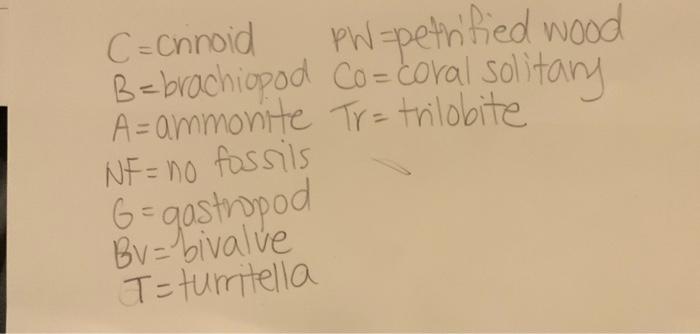 C = crinoid
B = brachiopod
A = ammonite
NF = no fossils
G = gastropod
Bv = bivalve
T = turritella
PW = petrified wood
Co = coral solitary
Tr = trilobite